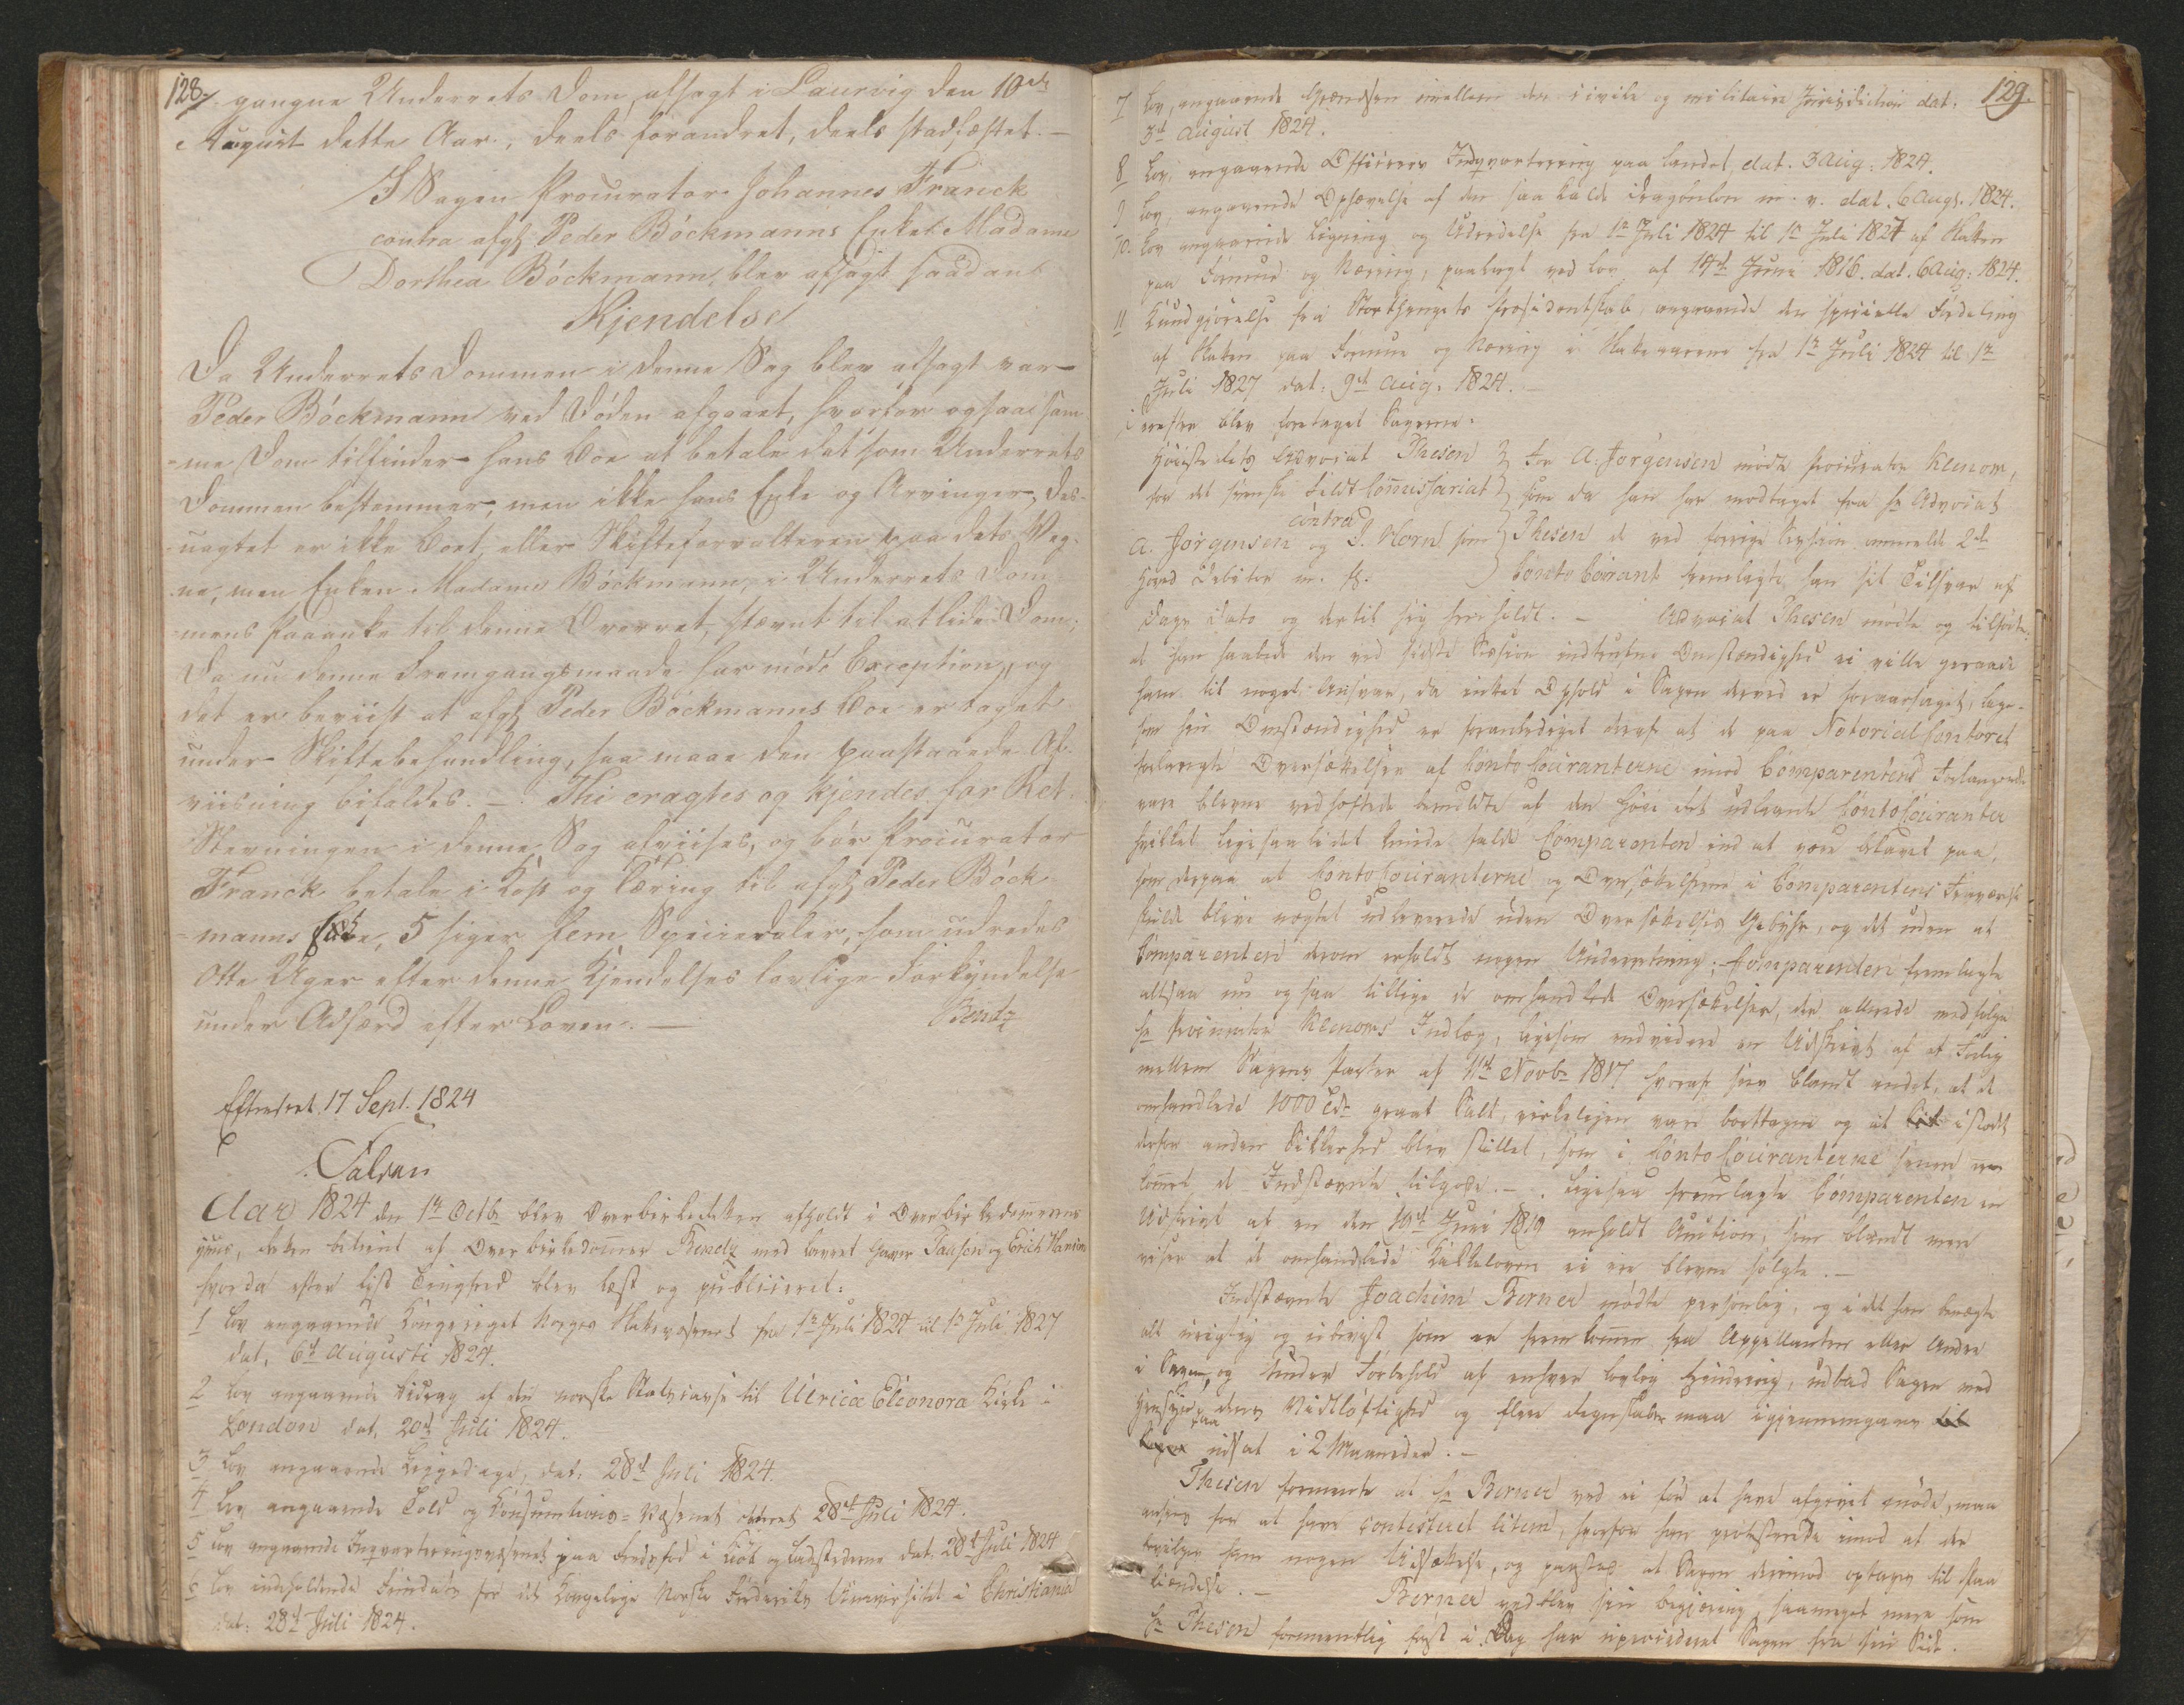 128.
gangne Underrets Dom, afsagt i Laurvig den 10de
August dette Aar, deels forandret, deels stadfæstet. —
I Sagen Procurator Johannes Franck
contra afgl Peder Böckmanns Enke Madame
Dorthea Böckmann, blev afsagt saadan
Kjendelse
Da Underrets Dommen i denne Sag blev afsagt var
Peder Böckmann ved Döden afgaaet, hvorfor ogsaa sam-
-me Dom tilfinder hans Boe at betale det som Underrets
Dommen bestemmer, men ikke hans Enke og Arvinger, des-
uagtet er ikke Boet, eller Skifteforvalteren paa dets Veg-
ne, men Enken Madame Böckmann, i Underrets Dom-
mens Paaanke til denne Overret, stevnt til at lide Dom;
Da nu denne Fremgangsmaade har mödt Exception, og
det er beviist at afgl Peder Böckmanns Boe er taget
under Skiftebehandling, saa maae den paastaaede Af-
viisning bifaldes. — Thi eragtes og kjendes for Ret:
Stevningen i denne Sag afviises, og bör Procurator
Franck betale i Kost og Tæring til afgl Peder Böck-
=manns Enke, 5 siger fem Speciedaler, som udredes
Otte Uger efter denne Kjendelses lovlige Forkyndelse
under Adfærd efter Loven. —
Bendz
Efterseet 17 Sept. 1824
Falsen
Aar 1824 den 1ste Octbr blev Overbirkeretten afholdt i Overbirkedommerens
Huus, Retten betient af Overbirkedommer Bendz med Lavret Hans Paulsen og Erich Hansen
hvorda efter lyst Tingfred blev læst og publiceret:
1 Lov angaaende Kongeriget Norges Skattevæsenet fra 1ste Juli 1824 til 1ste Juli 1827
dat. 6te Augusti 1824.
2 Lov angaaende Bidrag af den norske Statscasse til Ulrica Eleonora Kirke i
London dat. 20de Juli 1824.
3 Lov angaaende Liggedage, dat: 28de Juli 1824.
4 Lov angaaende Told og Consumtions=Væsenet dateret 28de Juli 1824.
5 Lov angaaende Inqvarteringsvæsenet paa Fredsfod i Kiöb og Ladstæderne dat. 28de Juli 1824
6 Lov indeholdende Fundats for det Kongelige Norske Frederiks Universitet i Christiania
dat: 28de Juli 1824.
129.
7 Lov, angaaende Grændsen imellem den civile og militaire Jurisdiction dat:
3de August 1824.
8 Lov, angaaende Officerers Indqvartering paa Landet, dat. 3 Aug: 1824.
9 Lov, angaaende Ophævelse af den saa kaldte Dragonlön m. v. dat. 6 Augs. 1824.
10. Lov angaaende Ligning og Udredelse fra 1ste Juli 1824 til 1ste Juli 1827 af Skatten
paa Formue og Næring, paalagt ved Lov af 14de Juni 1816. dat. 6 Aug: 1824.
11 Kundgjörelse fra Storthingets Præsidentskab, angaaende den specielle Fordeling
af Skatten paa Formue og Næring i Skatteaarene fra 1ste Juli 1824 til 1ste
Juli 1827 dat: 9de Aug. 1824.
blev foretaget Sagerne.
Höieste Rets Advocat Thesen
for det svenske Feldt Comissariat
contra
A. Jörgensen og J. Horn som
Hoved Debitor m. fl.
For A. Jörgensen mödte Procurator Klenow,
som da han har modtaget fra Hr Advocat
Thesen de ved forrige Session anmeldte 2de
Conto Courant fremlagte han sit Tilsvar af
Dags Dato og dertil sig henholdt. — Advocat Thesen mödte og tilföiede,
at han haabede den ved sidste Session indtrufne Omstændighed ei ville geraade
ham til noget Ansvar, da intet Ophold i Sagen derved er foraarsaget, lige-
som hin Omstændighed er foranlediget deraf at de paa Notorialcontoret
forlangte Oversættelser af Conto Couranterne imod Comparentens Forlangende
vare blevne vedhæftede bemeldte af den Höie Ret udlaante Conto Couranter
hvilket ligesaalidet kunde falde Comparenten ind at være betænkt paa,
som derpaa at Conto Couranterne og Oversættelserne i Comparentens Fraværelse
skulde blive nægtet udleverede uden Oversættelses Gebyhr, og det uden at
Comparenten derom erholdt nogen Underretning; — Comparenten fremlagte
altsaa nu ogsaa tillige de omhandlede Oversættelser, der allerede medfulgte
Hr Procurator Klenows Indlæg, ligesom endvidere en Udskrivt af et Forlig
mellem Sagens Parter af 11te Novbr 1817 hvoraf sees blandt andet, at de
omhandlede 1000 Tdr graat Salt, virkeligen vare borttagne og at i stedet
derfor anden Sikkerhed blev stillet, som i Conto Couranterne
kommet de Indstævnte tilgode. — Ligesaa fremlagte Comparenten en
Udskrivt af en den 19de Juni 1819 anholdt Auction, som blandt mere
viser at de omhandlede ei ere blevne solgte. —
Indstævnte Joachim Berner mödte personlig, og i det han benægte
alt urigtig og ubeviist som er fremkommen fra Appellanten eller Andre
i Sagen, og under Forbehold af enhver lovlig, udbad Sagen med
Hensyn paa dens Vidtlöftighed og flere Regnskaber maa igjennemgaaes
udsat i 2 Maaneder. —
Thesen formente at Hr Berner ved ei för at have afgivet möde, maa
ansees for at have contesteret litem, hvorfor han protesterede imod at der
bevilges ham nogen Udsættelse, og paastod at Sagen derimod optages til
Kiendelse. — Berner vedblev sin begjæring saameget mere som
Hr Thesen formentlig först i Dag har uproviderat Sagen fra sin Side.